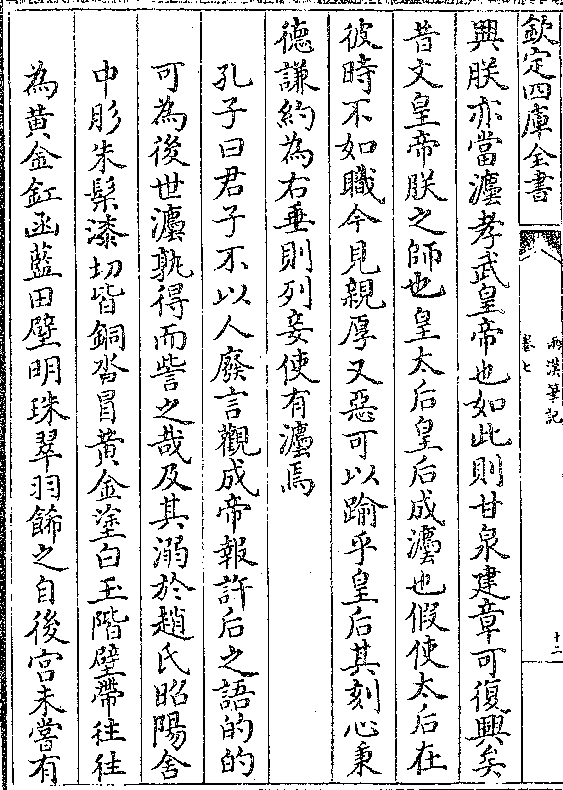 欽定四庫全書
兩漢筆記
卷七
十二
興朕亦當灋孝武皇帝也如此則甘泉建章可復興矣
昔文皇帝朕之師也皇太后皇后成灋也假使太后在
彼時不如職今見親厚又惡可以踰乎皇后其刻心秉
德謙約為右垂則列妾使有灋焉
孔子曰君子不以人廢言觀成帝報許后之語的的
可為後世灋孰得而訾之哉及其溺於趙氏昭陽舍
中彤朱髹漆切皆銅沓冒黃金塗白玉階壁帶往往
為黃金釭函藍田壁明珠翠羽飾之自後宮未嘗有